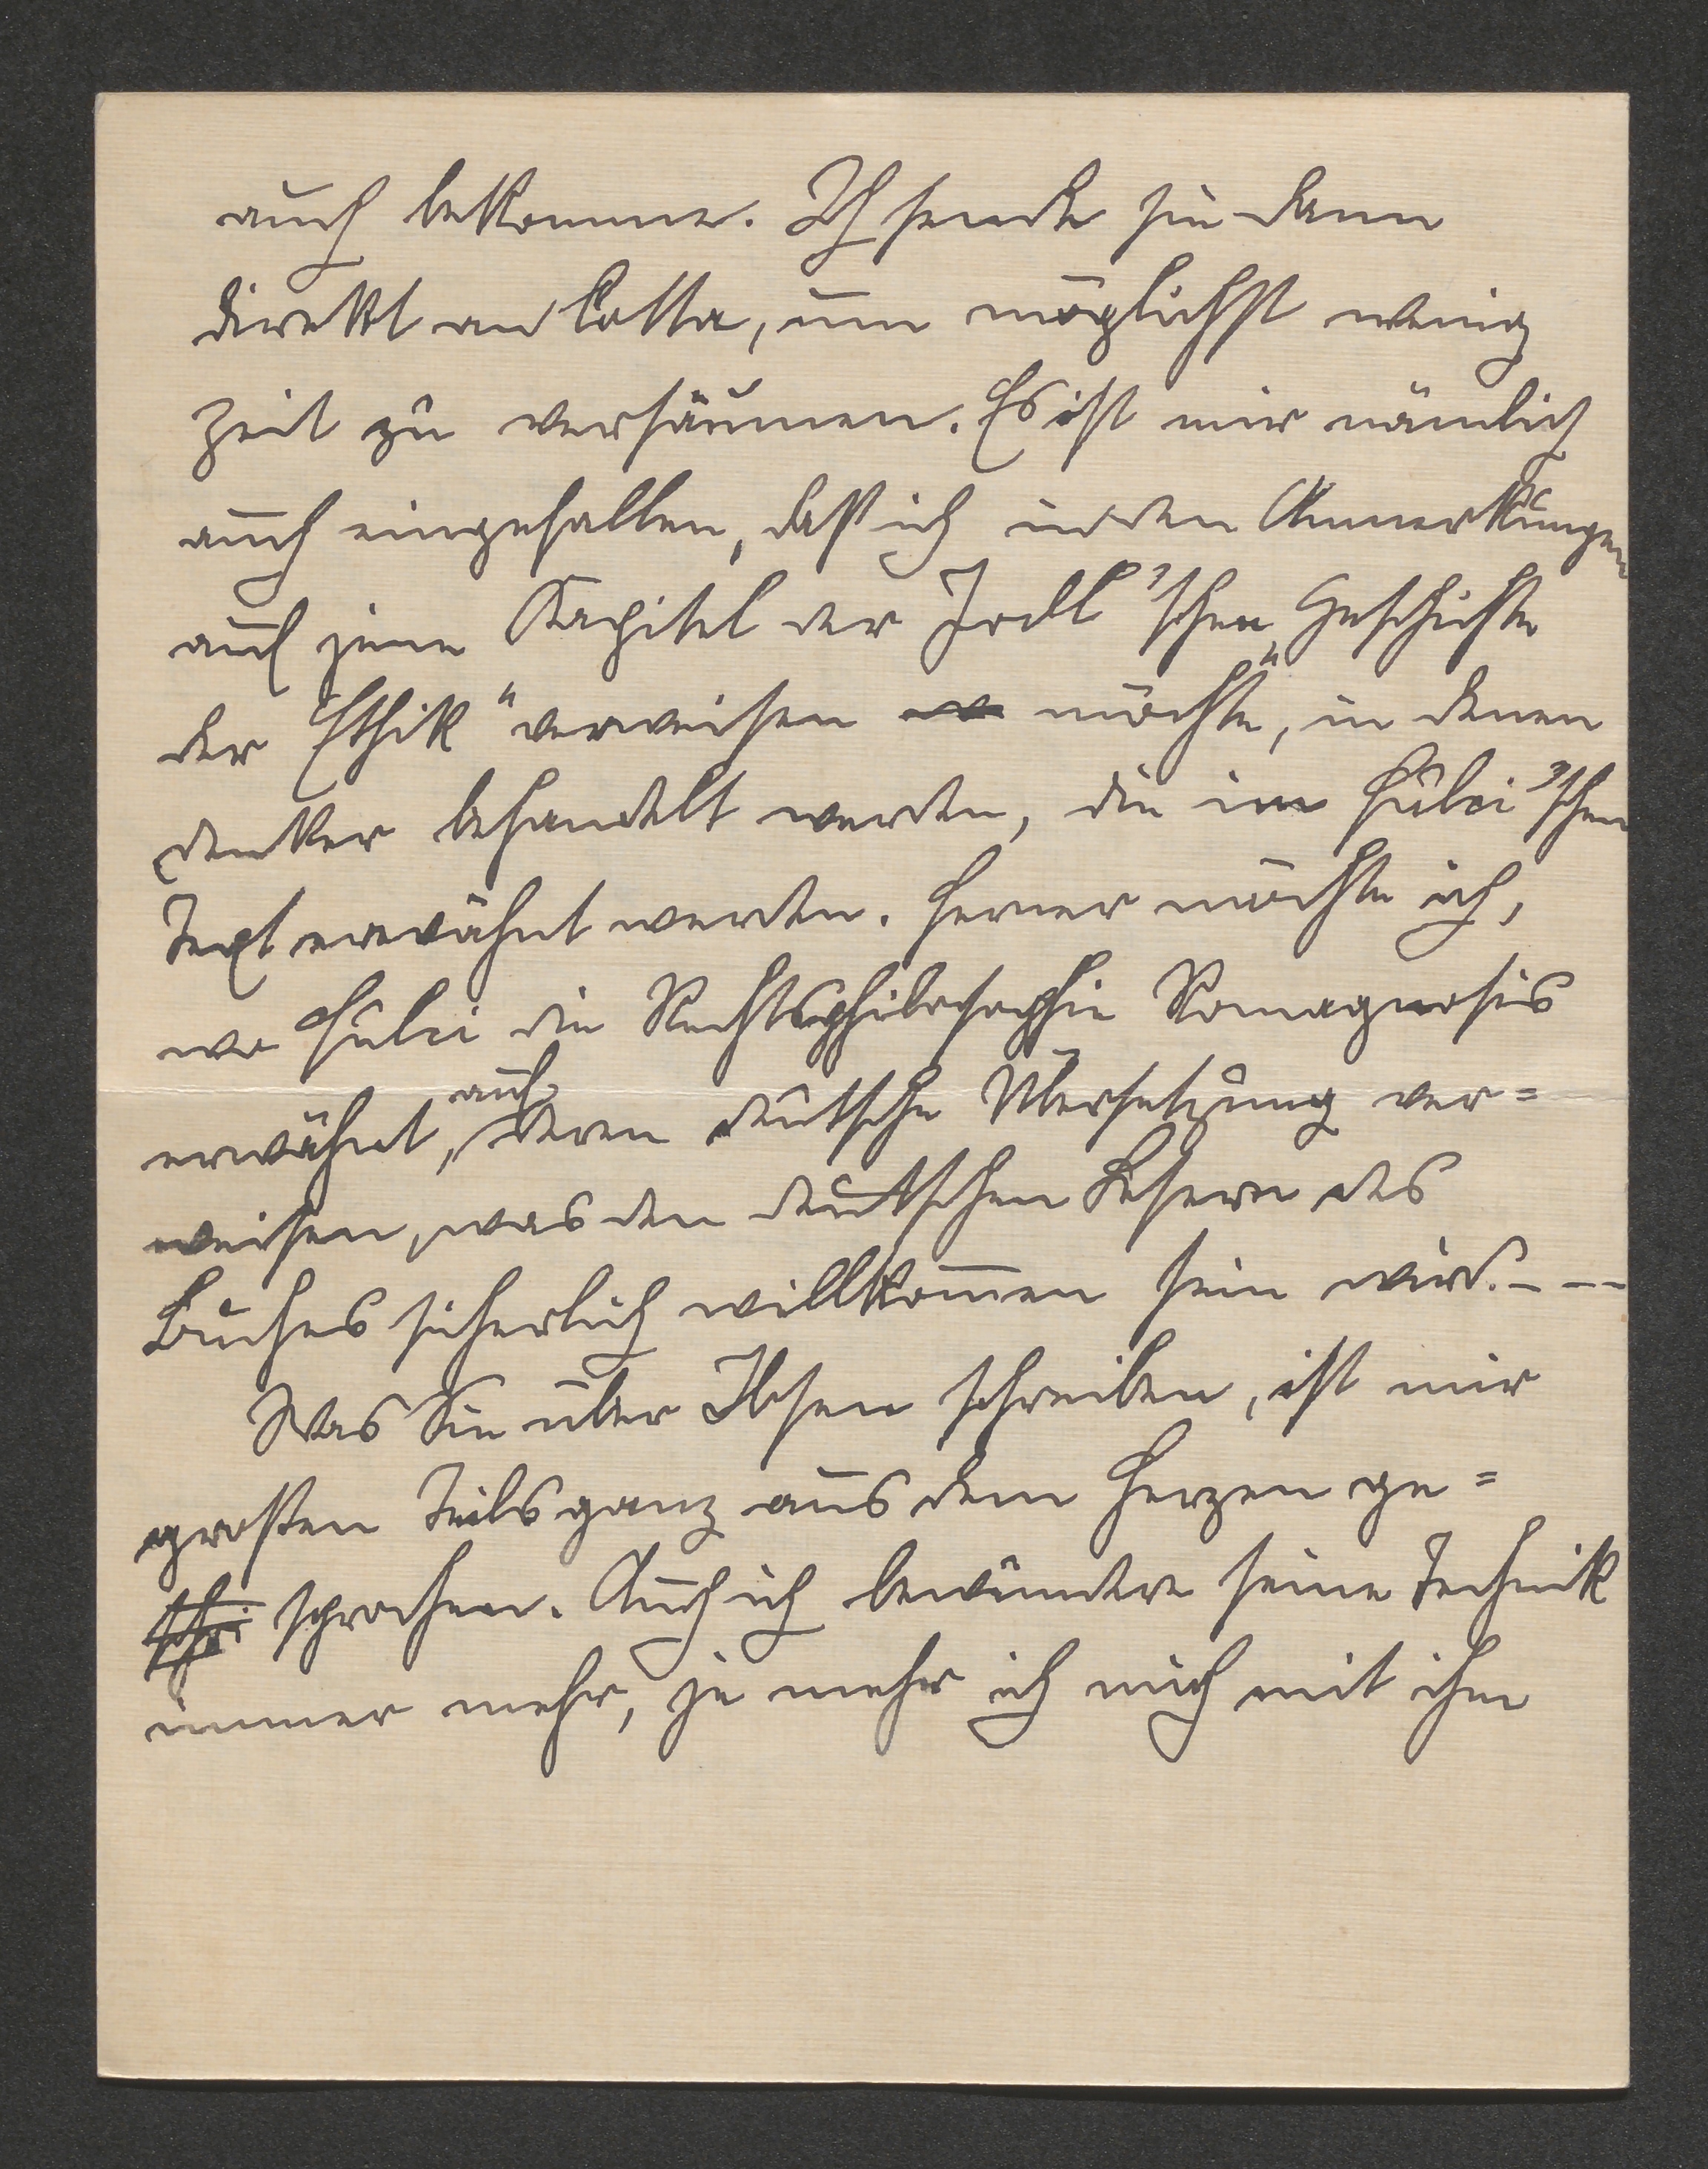 auch bekomme. Ich sende sie dann
direkt an Cotta, um möglichst wenig
Zeit zu versäumen. Es ist mir nämlich
auch eingefallen, daß ich in den Anmerkungen
auf jene Kapitel der Jodl'schen „Geschichte
der Ethik" verweisen möchte, in denen
Denker behandelt werden, die im Fulci'schen
Text erwähnt werden. Ferner möchte ich,
wo Fulci die Rechtsphilosophie Romagnosis
erwähnt, auf deren deutsche Übersetzung ver=
weisen, was den deutschen Lesern des
Buches sicherlich willkommen sein wird. – –
Was Sie über Ibsen schreiben, ist mir
großen Teils ganz aus dem Herzen ge=
schri sprochen. Auch ich bewundere seine Technik
immer mehr, je mehr ich mich mit ihm